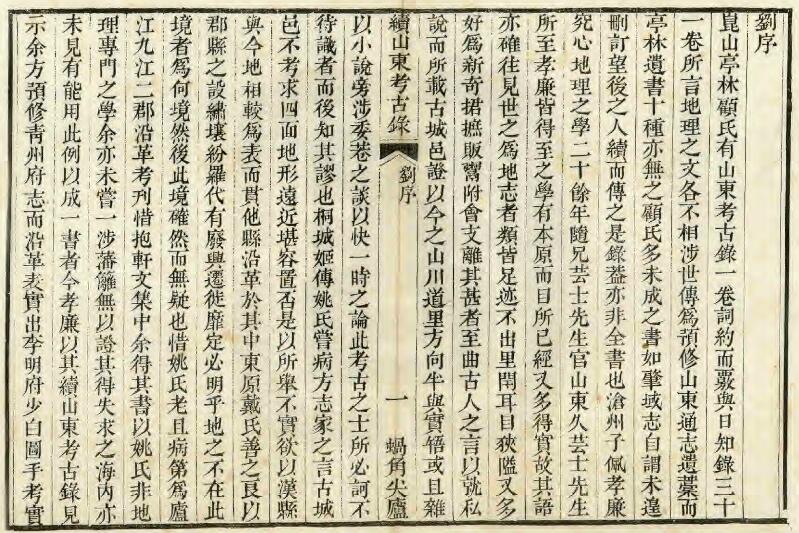 劉序
崑山亭林顧氏有山東考古錄一卷詞約而覈與日知錄三十
一卷所言地理之文各不相涉世傳為預修山東通志遺藁而
亭林遺書十種亦無之顧氏多未成之書如肇域志自謂未遑
刪訂望後之人續而傳之是錄葢亦非全書也滄州子佩孝廉
究心地理之學二十餘年隨兄芸士先生官山東久芸士先生
所至孝廉皆得至之學有本原而目所已經又多得實故其語
亦確往見世之為地志者類皆足迹不出里閈耳目狹隘又多
好為新奇捃摭販鬻附會支離其甚者至曲古人之言以就私
說而所載古城邑證以今之山川道里方向半與實牾或且雜
續山東考古錄
劉序
一
蝸角尖廬
以小說旁涉委巷之談以快一時之論此考古之士所必訶不
待識者而後知其謬也桐城姬傳姚氏嘗病方志家之言古城
邑不考求四面地形遠近堪容置否是以所舉不實欲以漢縣
與今地相較為表而貫他縣沿革於其中東原戴氏善之良以
郡縣之設繡壤紛羅代有廢興遷徙靡定必明乎地之不在此
境者為何境然後此境確然而無疑也惜姚氏老且病第為廬
江九江二郡沿革考刊惜抱軒文集中余得其書以姚氏非地
理專門之學余亦未嘗一涉藩籬無以證其得失求之海內亦
未見有能用此例以成一書者今孝廉以其續山東考古錄見
示余方預修青州府志而沿革表實出李明府少白圖手考實